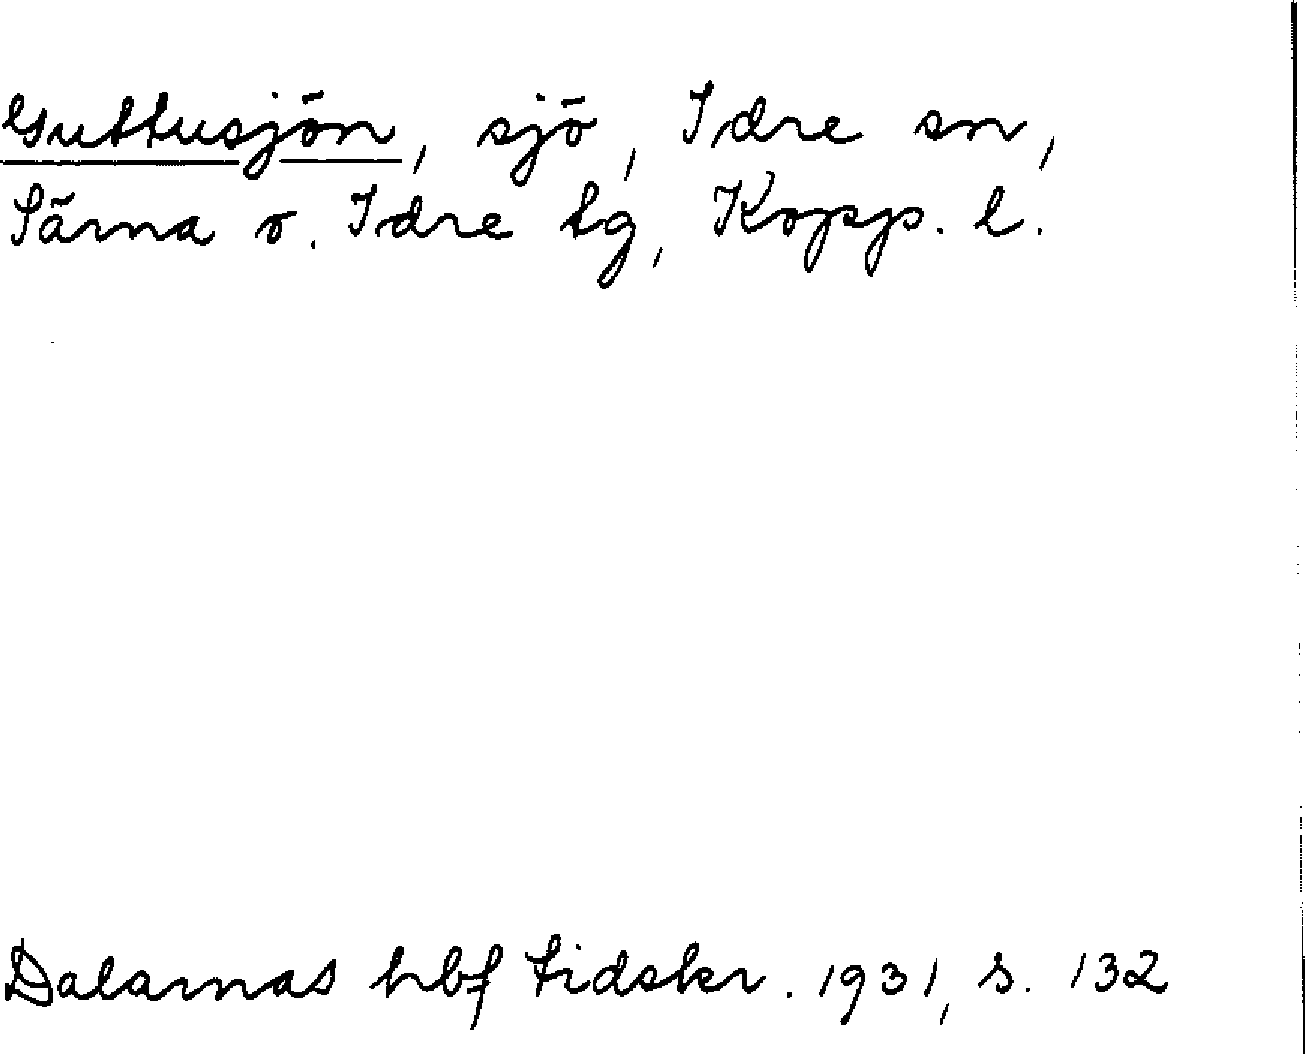 Guttusjön, sjö, Idre sn,
Särna o. Idre tg, Kopp. l.
Dalarnas hbf tidskr. 1931, s. 132